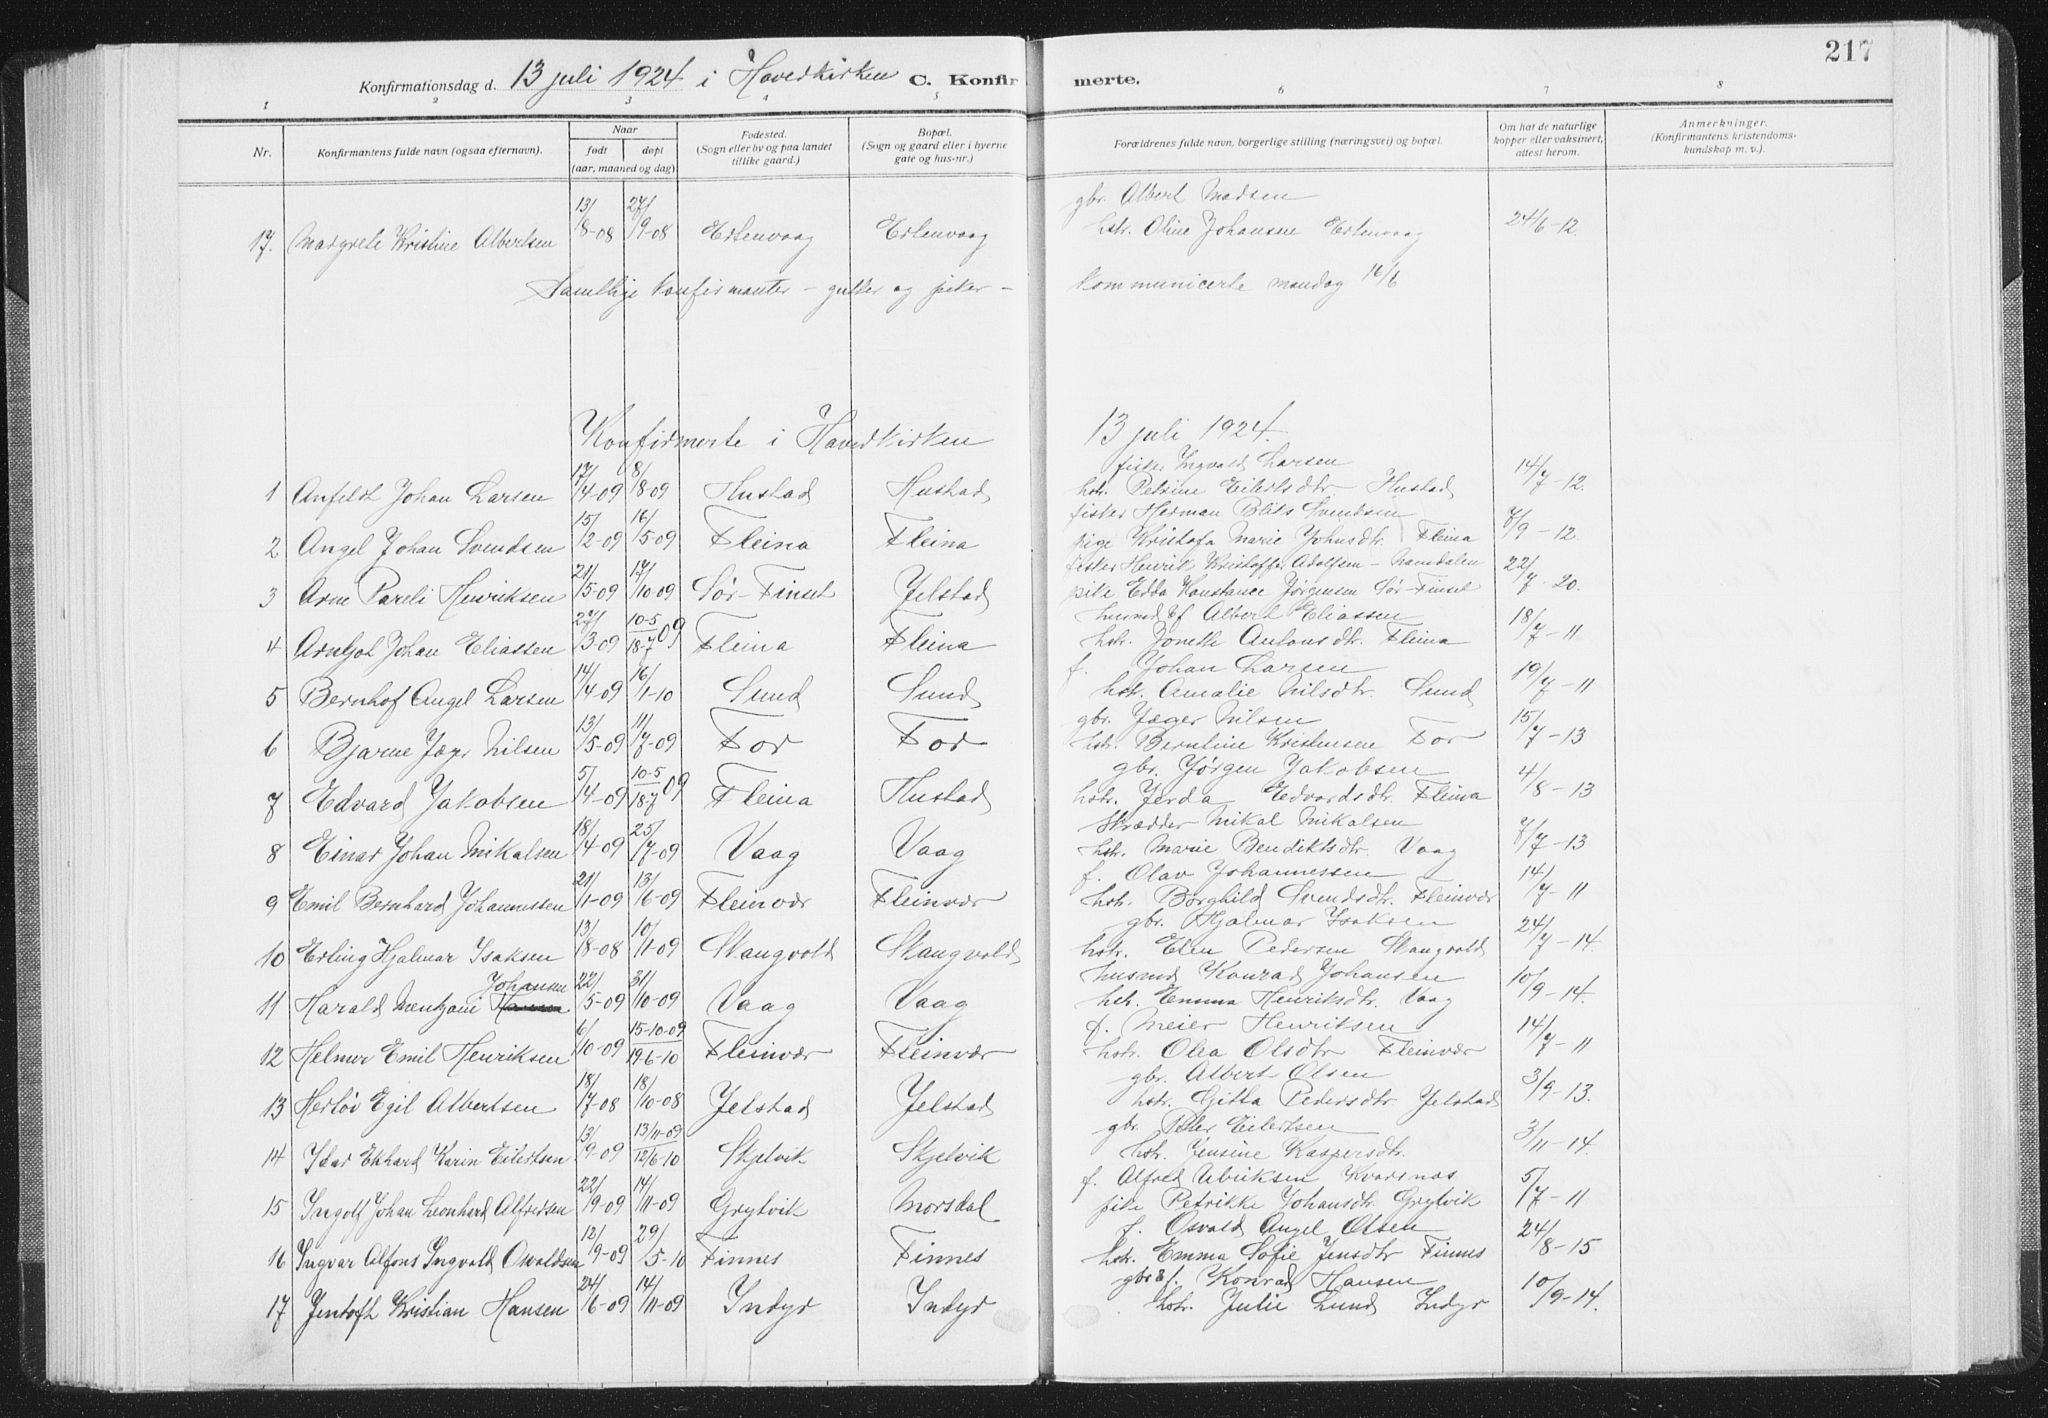 217
Konfirmationsdag d. 13 juli 1924 i Hovedkirken C. Konfirmerte.
1 2 3 4 5 6 7 8
Nr. Konfirmantens fulde navn (ogsaa efternavn). Naar født døpt (aar, maaned og dag) Fødested. (Sogn eller by og paa landet tillike gaard.) Bopæl. (Sogn og gaard eller i byerne gate og hus-nr.) Forældrenes fulde navn, borgerlige stilling (næringsvei) og bopæl. Om hat de naturlige kopper eller vaksinert, attest herom. Anmerkninger. (Konfirmantens kristendomskundskap m. v.).
gbr. Albert Madsen
17. Margrete Kristine Albertsen 13/8-08 27/9-08 Ertenvaag Ertenvaag hstr. Oline Johansen Ertenvaag 24/6-12.
Samtlige konfirmanter – gutter og piker – kommunicerte mandag 16/6
Konfirmerte i Hovedkirken 13 juli 1924.
fisker Ingvald Larsen
1 Anfeldt Johan Larsen 17/4-09 8/8-09 Hustad Hustad hstr. Petrine Eilertsdtr Hustad 14/7-12.
fisker Herman Bliks Svendsen
2 Angel Johan Svendsen 15/2-09 16/5-09 Fleina Fleina pige Kristofa Marie Johnsdtr. Fleina 7/9-12
fisker Henrik Kristoffer Adolfsen – Namdalen
3 Arne Pareli Henriksen 21/5-09 17/10-09 Sør-Finset Jelstad pike Edda Konstance Jørgensen Sør-Finset 22/7-20.
husmd & f Albert Eliassen
4 Arntjot Johan Eliassen 27/3-09 10-5/18-7 09 Fleina Fleina hstr. Jonette Antonsdtr. Fleina 18/7-11
f. Johan Larsen
5 Bernhof Angel Larsen 14/4-09 16/1-10 Sund Sund hstr. Amalie Nilsdtr. Sund 19/7-11
gbr. Jæger Nilsen
6 Bjarne Jæger Nilsen 13/5-09 11/7-09 For For hstr. Berntine Kristensen For 15/7-13
gbr. Jørgen Jakobsen
7 Edvard Jakobsen 5/4-09 10-5/18-7 09 Fleina Hustad hstr. Jerda Edvardsdtr. Fleina 4/8-13
Skrædder Mikal Mikalsen
8 Einar Johan Mikalsen 18/4-09 25/7-09 Vaag Vaag hstr. Marie Bendiktsdtr. Vaag 7/7-13
f. Olav Johannessen
9 Emil Bernhard Johannessen 21/1-09 13/6-09 Fleinvær Fleinvær hstr. Borghild Svendsdtr. Fleinvær 14/7-11
gbr. Hjalmar Isaksen
10 Erling Hjalmar Isaksen 13/8-08 10/1-09 Skaugvold Skaugvold hstr. Elen Pedersen Skaugvold 24/7-14.
Johansen husmd Konrad Johansen
11 Harald Mentzoni 22/5-09 31/10-09 Vaag Vaag hstr. Emma Henriksdtr. Vaag 10/9-14.
f. Meier Henriksen
12 Helmer Emil Henriksen 6/10-09 15-10-09/19-6-10 Fleinvær Fleinvær hstr. Olea Olsdtr Fleinvær 14/7-11
gbr. Albert Olsen
13 Herlöv Egil Albertsen 18/7-08 18/10-08 Jelstad Jelstad hstr. Gitta Pedersdtr. Jelstad 3/9-13.
gbr. Peter Eilertsen
14 Idar Ekhard Karin Eilertsen 13/9-09 13/11-09 12/6-10 Skjelvik Skjelvik hstr. Jensine Kaspersdtr. 3/11-14.
f. Alfred Ulriksen Kvarsnes
15 Ingolf Johan Leonhard Alfredsen 22/9-09 14/11-09 Grytvik Morsdal pike Petrikke Johansdtr. Grytvik 5/7-11
f. Osvald Angel Olsen
16 Ingvar Alfons Ingvald Osvaldsen 12/9-09 29/5-10 Finnes Finnes hstr. Emma Sofie Jensdtr Finnes 24/8-15
gbr & f. Konrad Hansen
17 Jentoft Kristian Hansen 24/6-09 14/11-09 Indyr Indyr hstr. Julie Lund Indyr 10/9-14.